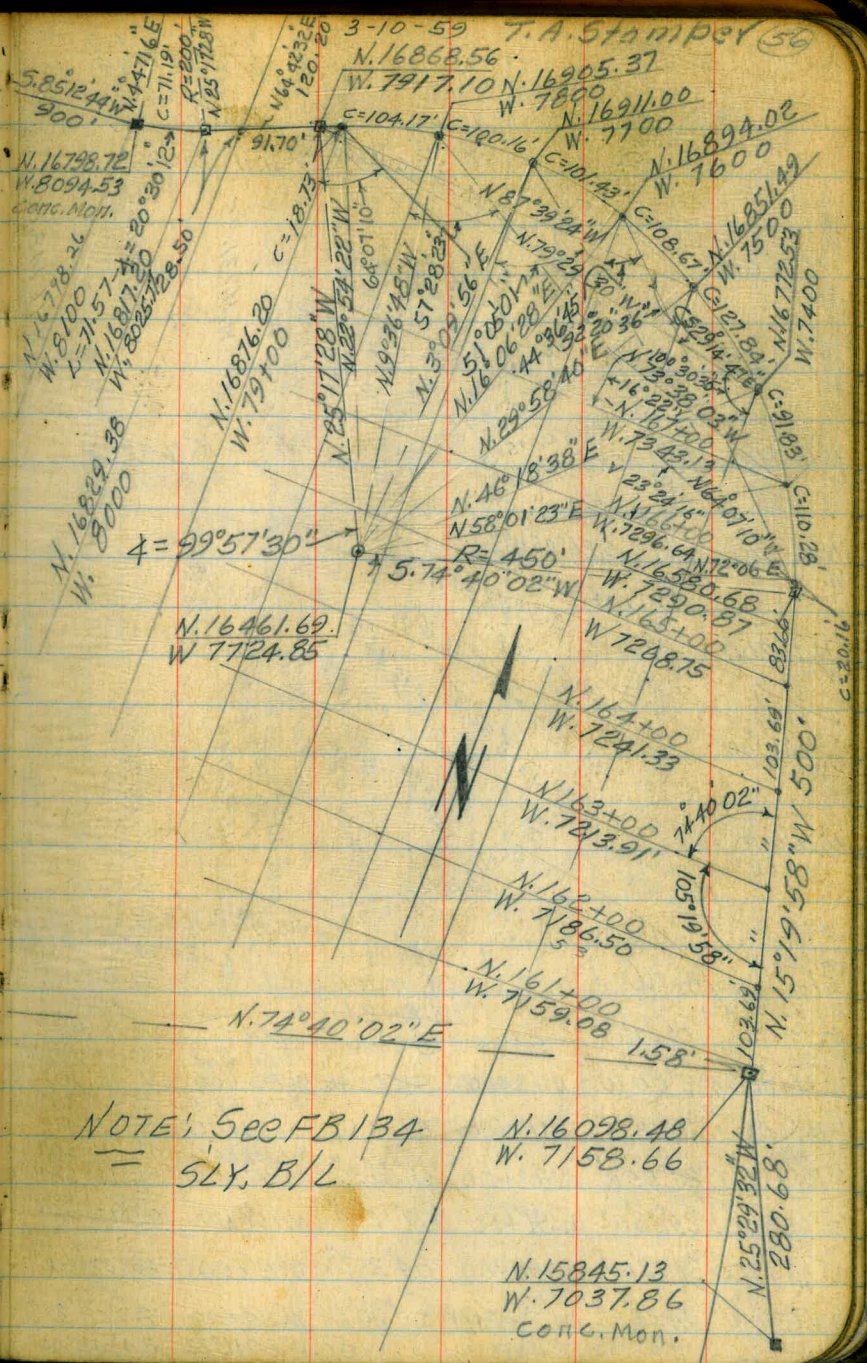 3-10-59
T. A. Stamper
56
S.85°12'44"W
900'
N.4°47'16"E
C=71.19'
R=200'
N25°17'28"W
N64°42'32"E
120.20
N.16868.56
W.7917.10
N.16905.37
W.7800
N.16911.00
W.7700
N.16894.02
W.7600
N.16851.49
W.7500
N.16772.53
W.7400
N.16798.72
W.8094.53
Conc. Mon.
91.70'
C=104.17'
C=100.16'
C=101.43'
C=108.67'
C=127.84'
C=91.83'
C=110.28'
C=20.16'
C=18.73'
N.16798.26
W.8100
L=71.57
∡=20°30'12"
N.16817.20
W.8025.17
28.50'
N.16829.38
W. 8000
N.16876.20
W.79+00
N.25°17'28"W
N.22°54'22"W
N.9°36'48"W
57°28'23"
N.3°09'56"E
51°05'01"
N.16°06'28"E
44°36'45"
N.29°58'40"E
N87°39'24"W
N.79°29'
92°20'36"
N.73°38'03"W
16°22'
N.167+00
W.7343.13
N64°07'10"W
23°24'16"
N.46°18'38"E
N58°01'23"E
N.166+00
W.7296.64
N.72°06'E
R=450'
N.16580.68
W.7290.87
∡=99°57'30"
S.74°40'02"W
N.165+00
W 7268.75
83.66'
N.16461.69
W 7724.85
N.164+00
W.7241.33
103.69'
N
N.163+00
W.7213.91'
74°40'02"
"
N.15°19'58"W 500'
105°19'58"
N.162+00
W.7186.50
53
"
N.161+00
W.7159.08
103.69'
N.74°40'02"E
1.58'
NOTE: See FB 134
SLY. B/L
N.16098.48
W.7158.66
N.25°29'32"W
280.68'
N.15845.13
W.7037.86
Conc. Mon.